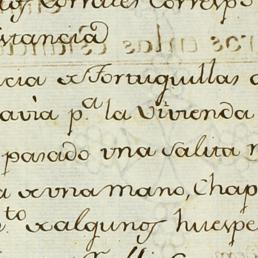 Corrales Correspo
stancia
cia ex Portuguillas
avia p.ª la Vivienda
pasado vna Salita
a exvna mano, Chap
to exalgunos huespe